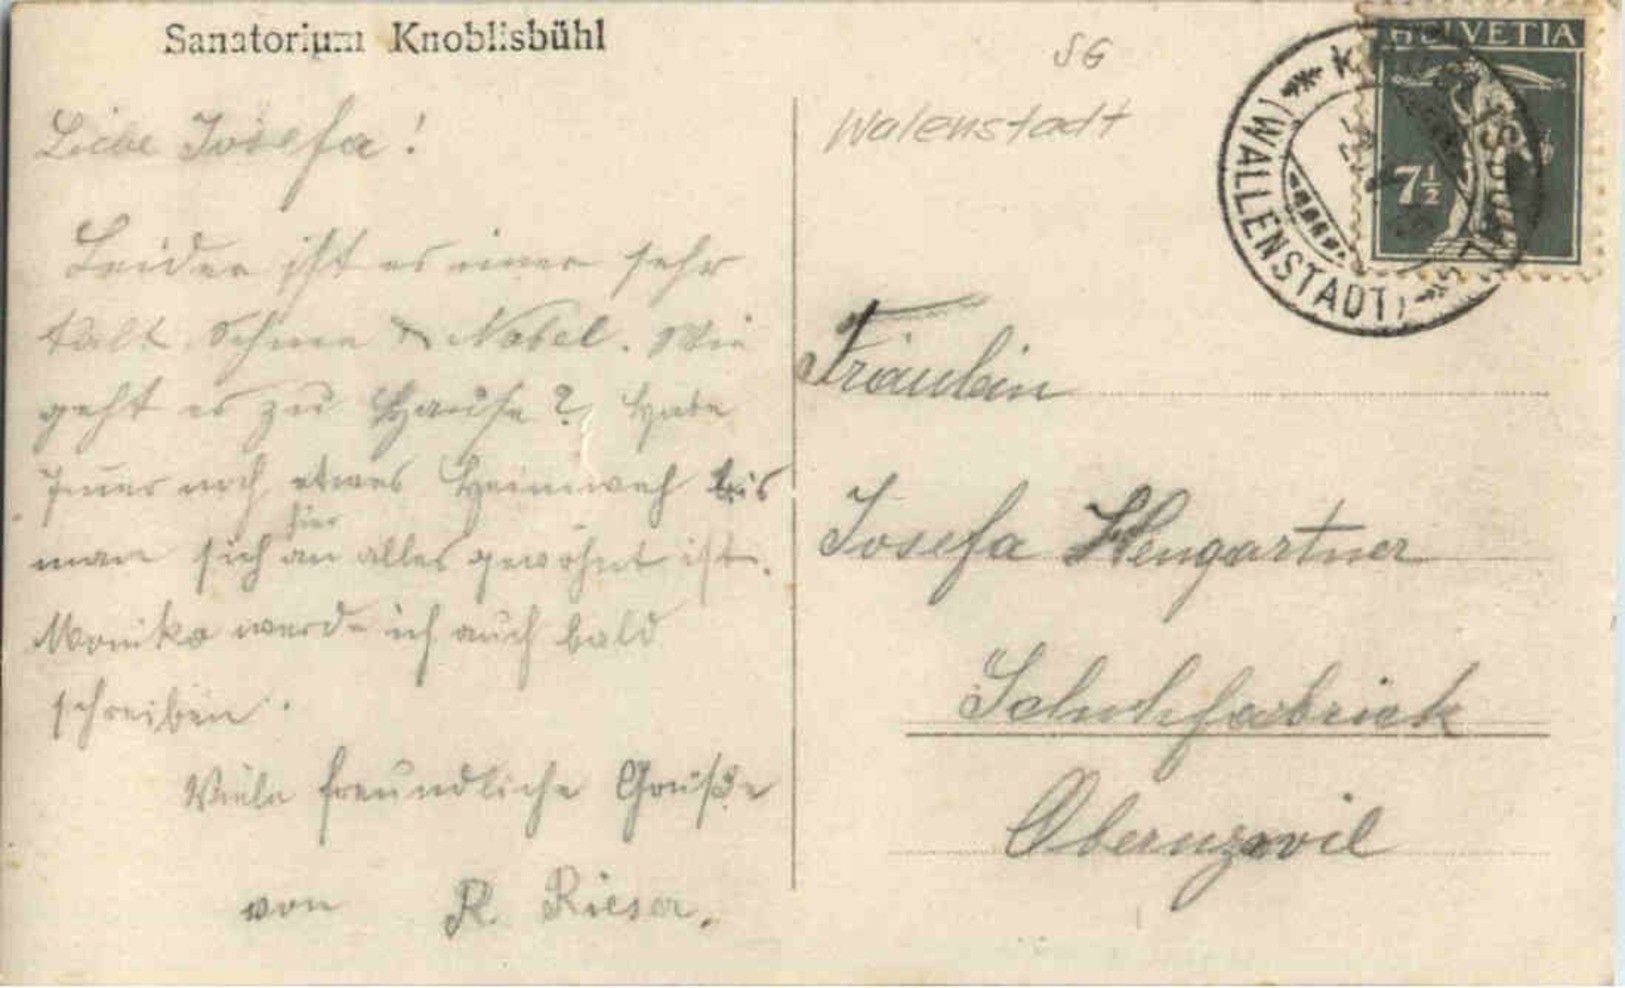 Sanatorium Knoblisbühl
Liebe Josefa!
Leider ist es immer sehr
kalt. Schnee & Nebel. Wie
geht es zu Hause? Habe
immer noch etwas Heimweh bis
hier
man sich an alles gewöhnt ist.
Monika werde ich auch bald
schreiben.
Viele freundliche Grüße
von R. Rieser.
SG
Walenstadt
HELVETIA
7½
(WALLENSTADT)
Fräulein
Josefa Hengartner
Schuhfabrick
Obernzwil